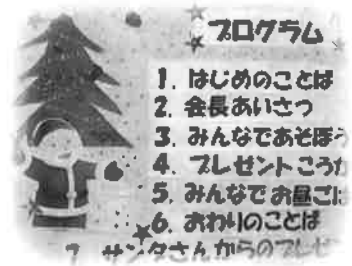 プログラム
1. はじめのことば
2. 会長あいさつ
3. みんなであそぼう
4. プレゼントこうか
5. みんなでお昼ごは
6. おわりのことば
7. サンタさんからのプレゼ